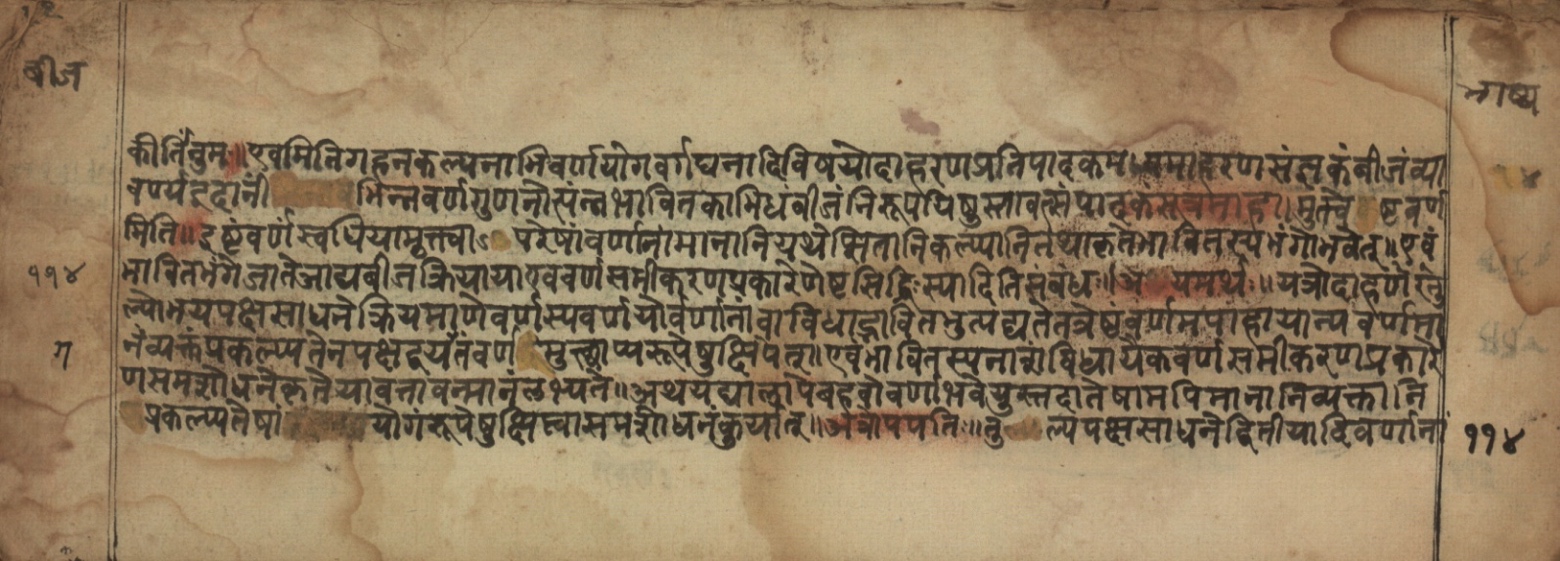 बीज
भाष्य
कीर्तिंवुम्॥एवमितिगहनकल्पनाभिवर्णयोगवर्गघनादिविषयोदाहरणप्रतिपादकम समाहरणसंज्ञकंबीजंव्या
वर्ण्यइदानीं भिन्नवर्णगुणनोत्पंन्नभावितकाभिधंबीजंनिरूपयिषुस्तावत्संपातकसूत्रमाह।मुक्त्वे ष्टवर्ण
मिति॥इष्टंवर्णंस्वधियामुक्त्वाऽ परेषांवर्णानांमानानियथेप्सितानिकल्प्यानितथाकृतेभावितस्यभंगोभवेत्॥एवं
११४
भावितभंगेजातेआद्यबीजक्रिययायाएववर्णसमीकरणप्रकारेणेष्टसिद्धिःस्यादितिसंबंधः॥अ यमर्थः॥यत्रोदाहर्णेस्तु
ल्योभयपक्षसाधनेक्रियमाणेवर्णस्यवर्णयोर्वर्णानांवाविधाद्भावितमुत्पद्यतेतत्रेष्टंवर्णमपाहायान्यवर्णमा
ग
नंव्यक्तंप्रकल्प्यतेनपक्षद्वयेतंवर्ण मुत्थाप्यरूपेषुक्षिपेत्॥एवंभावितस्यनाशंविधायैकवर्णसमीकरणप्रकारे
णसमशोधनेकृतेयावत्तावन्मानंलभ्यते॥अथयद्यालापेबहवोवर्णाभवेयुस्तदातेषामपिमानानिव्यक्तानि
प्रकल्प्यतेषां योगंरूपेषुक्षिप्त्वासमशोधनंकुर्यात्॥अत्रोपपतिः॥तु ल्यपक्षसाधनेद्वितीयादिवर्णानां
११४